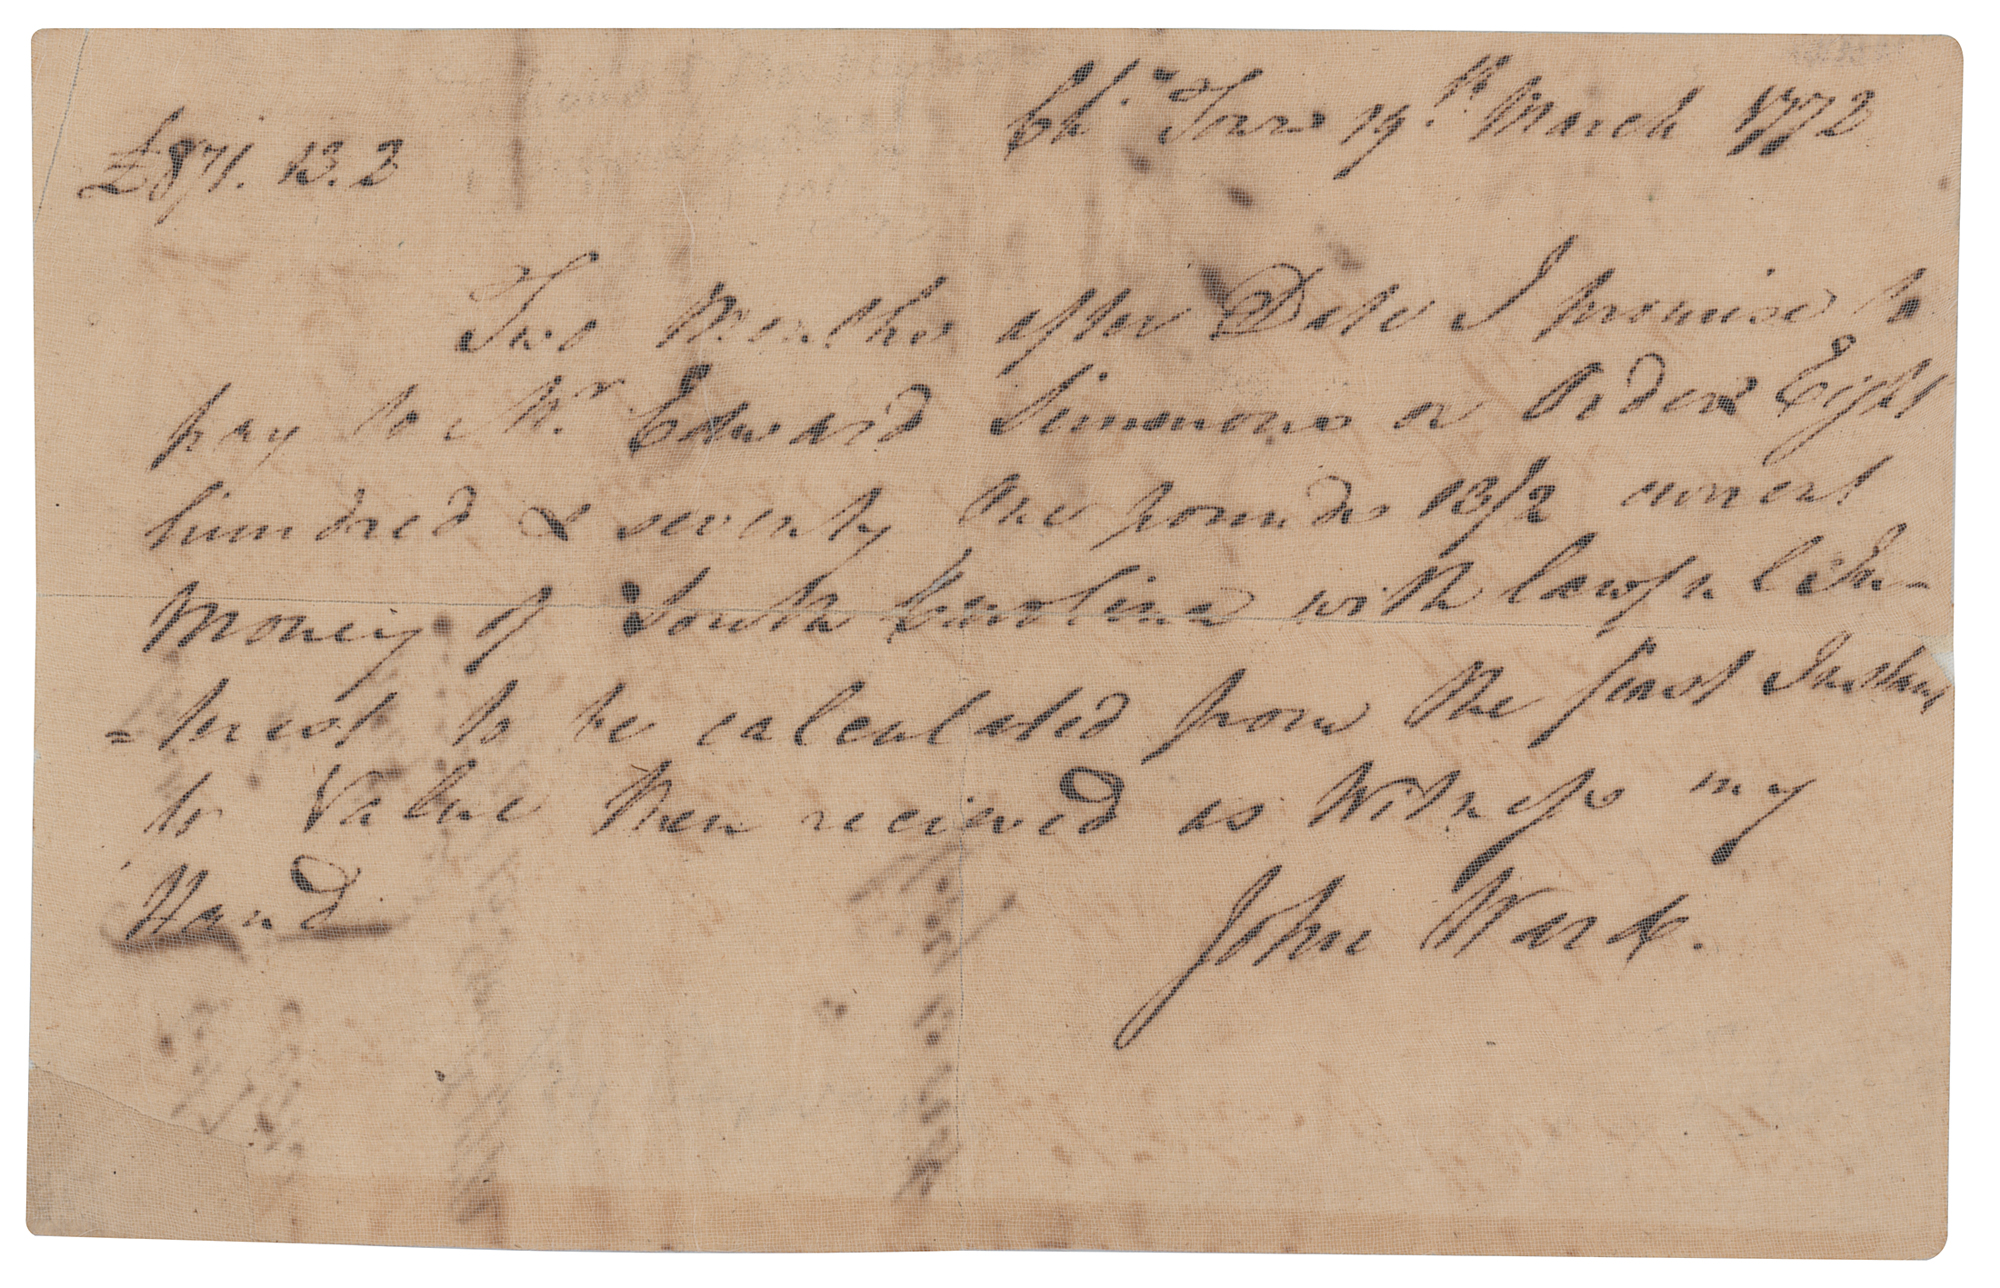 Chs. Town 19th. March 1772
£871. 13. 2
Two Months after Date I promise to
pay to Mr. Edward Simmons or Order Eight
hundred & seventy One pounds 13/2 current
Money of South Carolina with lawful In-
=terest to be calculated from the first Instant
for Value then recieved as Witness my
Hand
John Ward.